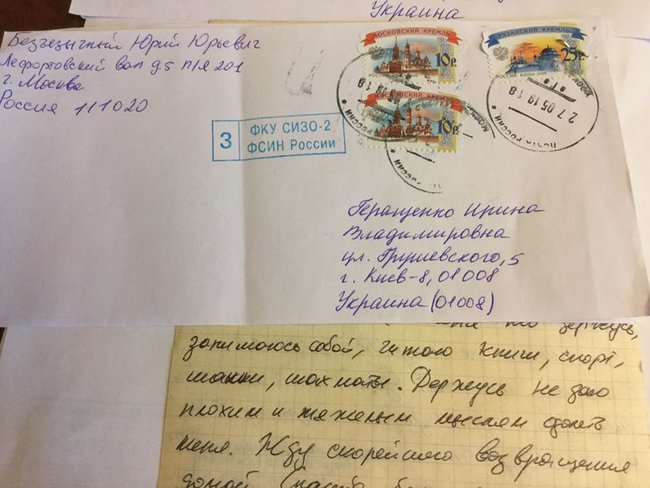 Украина
Безъязычный Юрий Юрьевич
Лефортовский вал д5 п/я 201
г. Москва
Россия 111020
МОСКОВСКИЙ КРЕМЛЬ
10р.
РЯЗАНСКИЙ КРЕМЛЬ
25р.
МОСКОВСКИЙ КРЕМЛЬ
10р.
27 05 19 18
ПОЧТА РОССИИ
3
ФКУ СИЗО-2
ФСИН России
Геращенко Ирина
Владимировна
ул. Грушевского, 5
г. Киев-8, 01008
Украина (01008)
держусь,
занимаюсь собой, читаю книги, спорт,
шашки, шахматы. Держусь не даю
плохим и тяжёлым мыслям сломить
меня. Жду скорейшего возвращения
домой